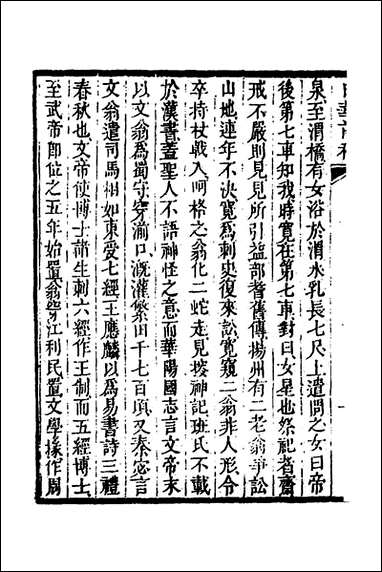 泉至渭橋有女浴於渭水乳長七尺上遣問之女曰帝
後第七車知我時寬在第七車對曰女星也祭祀者齋
戒不嚴則見見所引益部耆舊傳揚州有二老翁爭訟
山地連年不決寬爲刺史復來訟寬窺二翁非人形令
卒持杖戟入呵格之翁化二蛇走見搜神記班氏不載
於漢書蓋聖人不語神怪之意而華陽國志言文帝末
以文翁爲蜀守穿湔口溉灌繁田千七百頃又秦宓言
文翁遣司馬相如東受七經王應麟以爲易書詩三禮
春秋也文帝使博士諸生刺六經作王制而五經博士
至武帝卽位之五年始置翁穿江利民置文學掾作周